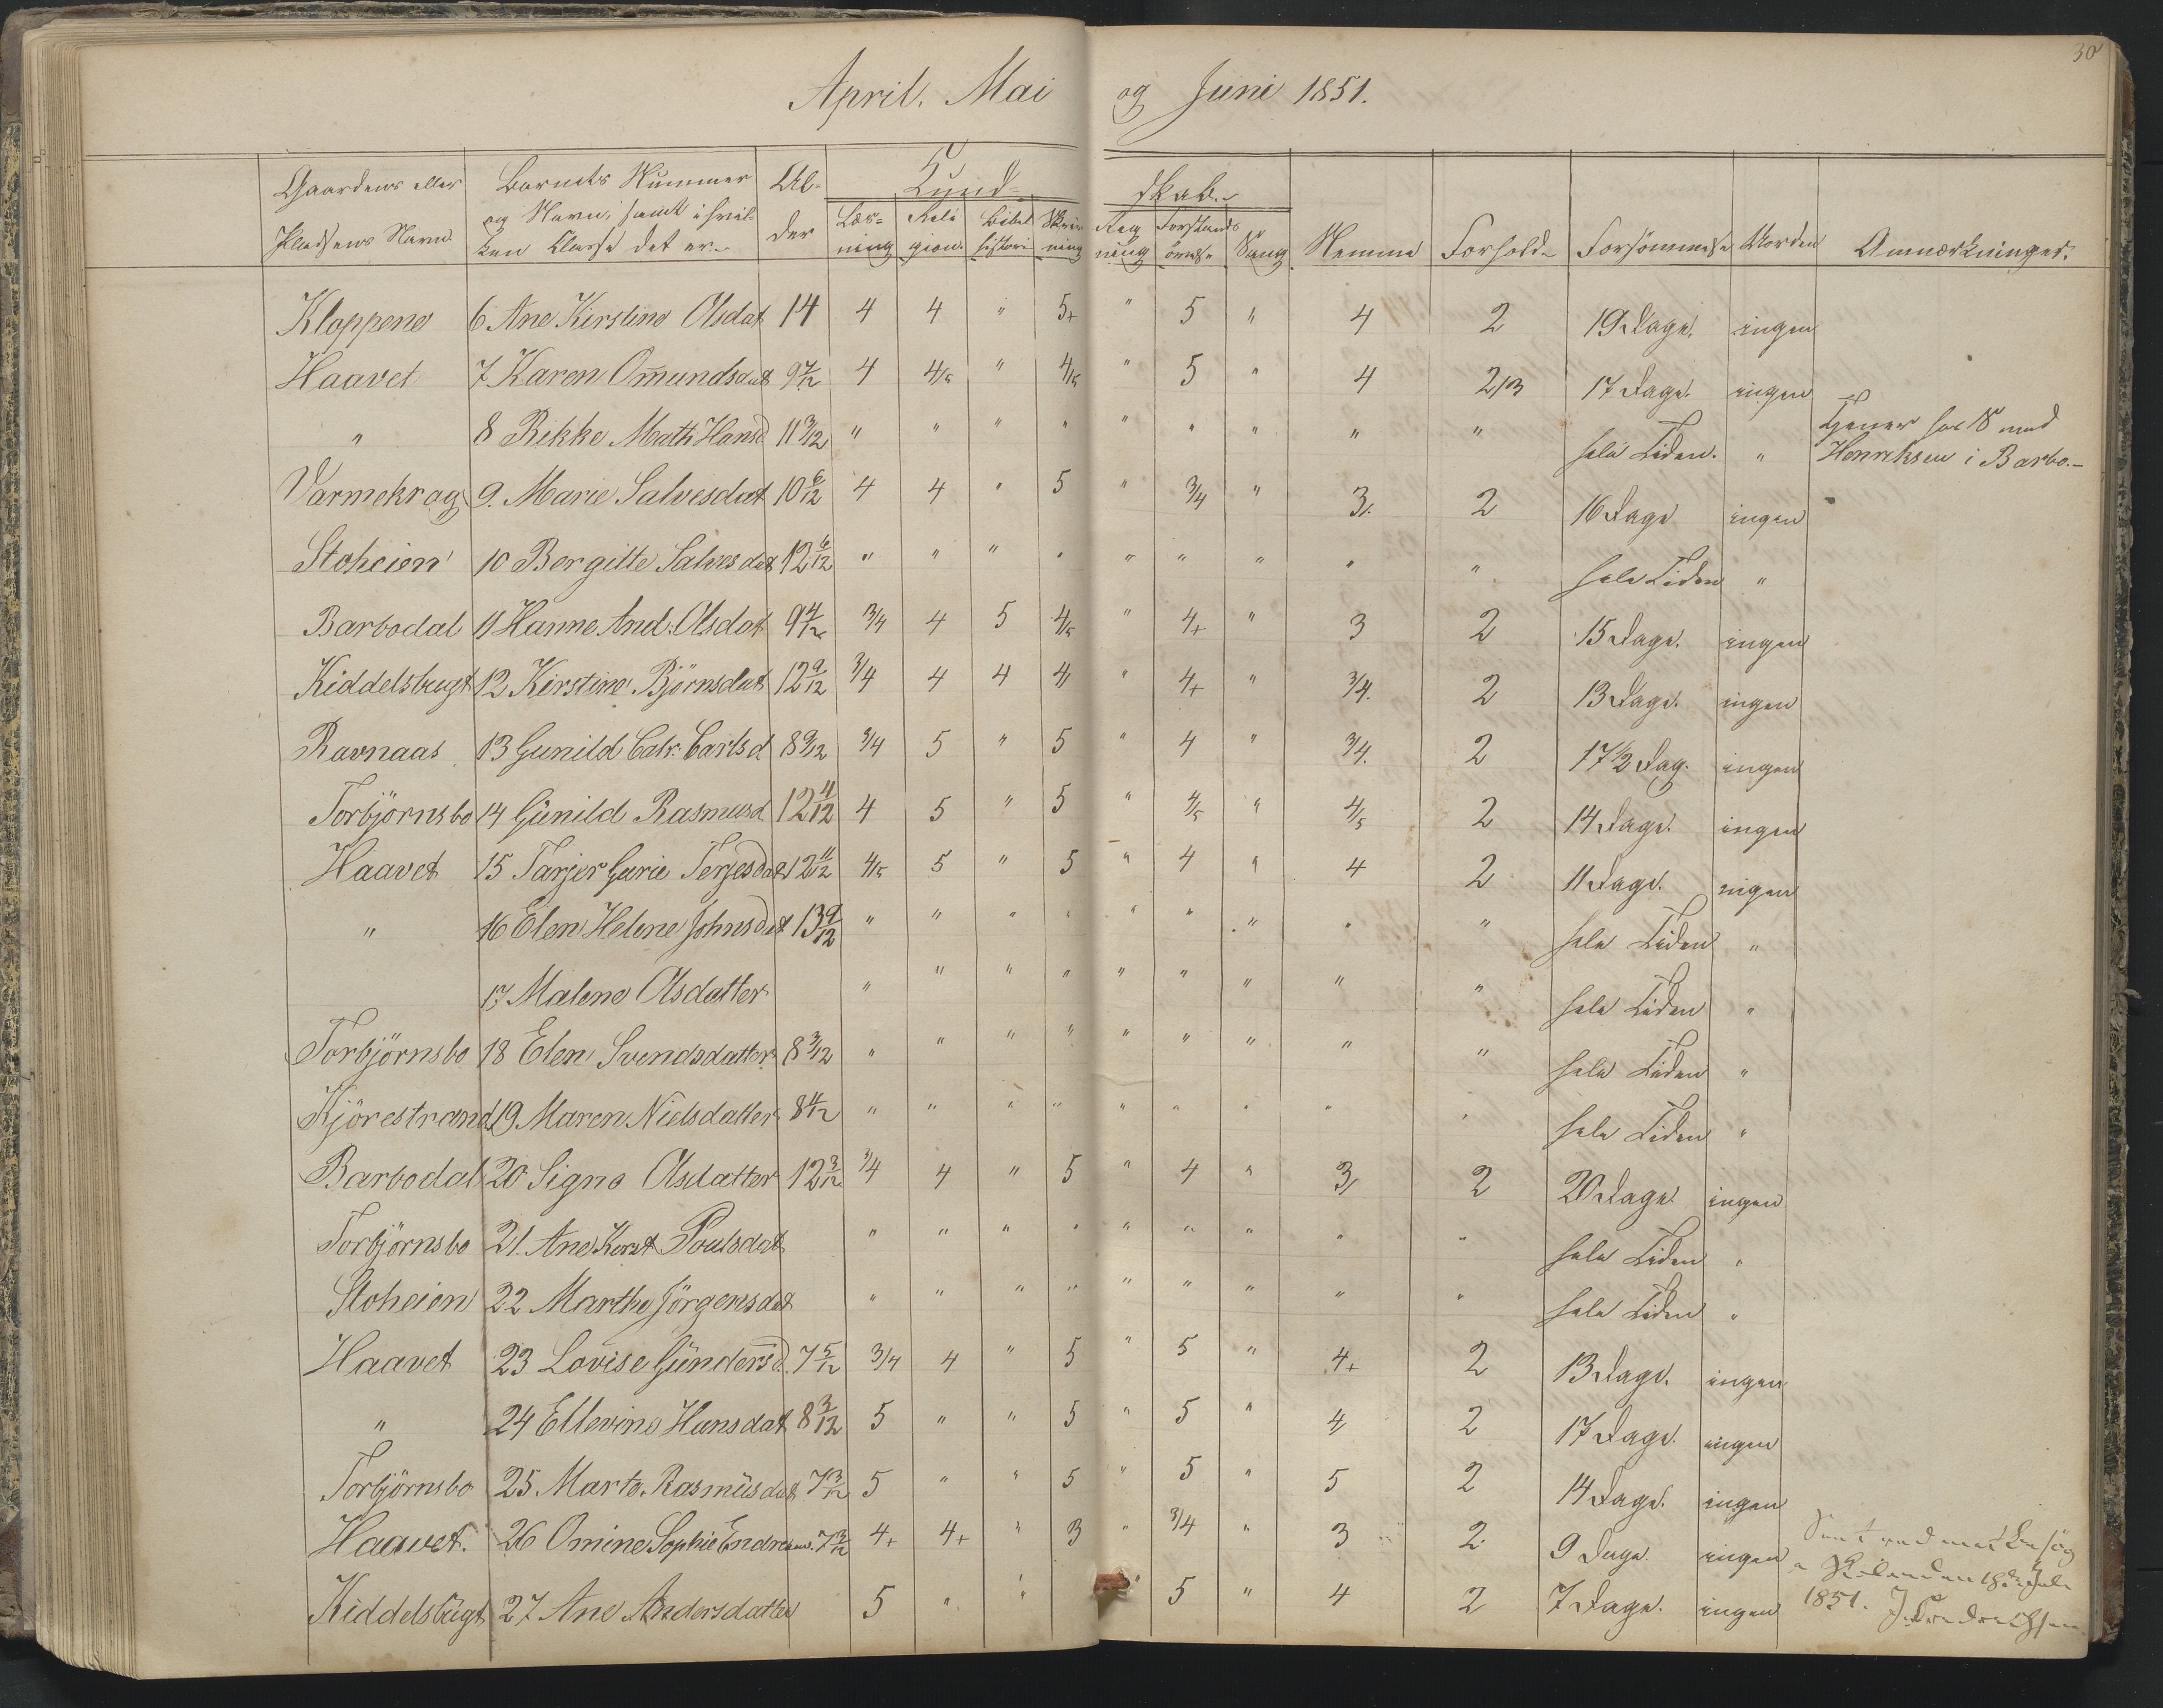 30
April, Mai og Juni 1851.
Gaardens eller Pladsens Navn. Barnets Nummer og Navn, samt i hvilken Classe det er. Alder Kundskab. Nemme Forhold Forsömmelse Anmærkninger.
Læsning Religion Bibelhistorie Skrivning Regning Forstandsövelse Sang
Kloppene 6 Ane Kirstine Olsdat 14 4 4 " 5+ " 5 " 4 2 19 Dage. ingen
Haavet 7 Karen Omundsdat 9 7/12 4 4/5 " 4/5 " 5 " 4 2/3 17 Dage. ingen
" 8 Rikke Math Hansd 11 3/12 " " " " " " " " " hele Tiden. " Tjener hos
Henriksen i Barbo.-
Varmekrog 9. Marie Salvesdat 10 6/12 4 4 " 5 " 3/4 " 3. 2 16 Dage ingen
Stoheien 10 Bergitte Salvesdat 12 6/12 " " " " " " " " " hele Tiden "
Barbodal 11 Hanne And. Olsdat 9 4/12 3/4 4 5 4/5 " 4+ " 3 2 15 Dage. ingen
Kiddelsbugt 12 Kirstine Björnsdat 12 9/12 3/4 4 4 4 " 4+ " 3/4. 2 13 Dage. ingen
Ravnaas 13 Gunild Catr. Carlsd 8 9/12 3/4 5 " 5 " 4 " 3/4. 2 17 1/2 Dag. ingen
Torbjörnsbo 14 Gunild Rasmusd 12 11/12 4 5 " 5 " 4/5 " 4/5 2 14 Dage. ingen
Haavet 15 Tarjer Gurie Terjesdat 12 11/12 4/5 5 " 5 " 4 " 4 2 11 Dage. ingen
" 16 Elen Helene Johnsdat 13 9/12 " " " " " " " " " hele Tiden "
17 Malene Olsdatter " " " " " " " " " hele Tiden "
Torbjörnsbo 18 Elen Svendsdatter 8 3/12 " " " " " " " " " hele Tiden "
Kjörestrand 19 Maren Nielsdatter 8 4/12 " " " " " " " " " hele Tiden "
Barbodal 20 Signe Olsdatter 12 3/12 3/4 4 " 5 " 4 " 3 2 20 Dage. ingen
Torbjörnsbo 21. Ane Kirst Poulsdat " " " " " " " " " hele Tiden "
Stoheien 22 Marthe Jörgensdat " " " " " " " " " hele Tiden "
Haavet 23 Lovise Gundersd. 7 5/12 3/4 4 " 5 " 5 " 4+ 2 13 Dage. ingen
" 24 Ellevine Hansdat 8 3/12 5 " " 5 " 5 " 4 2 17 Dage. ingen
Torbjörnsbo 25 Marta. Rasmusdat 7 3/12 5 " " 5 " 5 " 5 2 14 Dage. ingen
Haavet. 26 Omine Sophie Endresens. 7 3/12 4+ 4+ " 3 " 3/4 " 3 2 9 Dage. ingen
Kiddelsbugt 27 Ane Andersdatter 5 " " " 5 " 4 2 7 Dage. ingen
1851. J. Fredrechsen